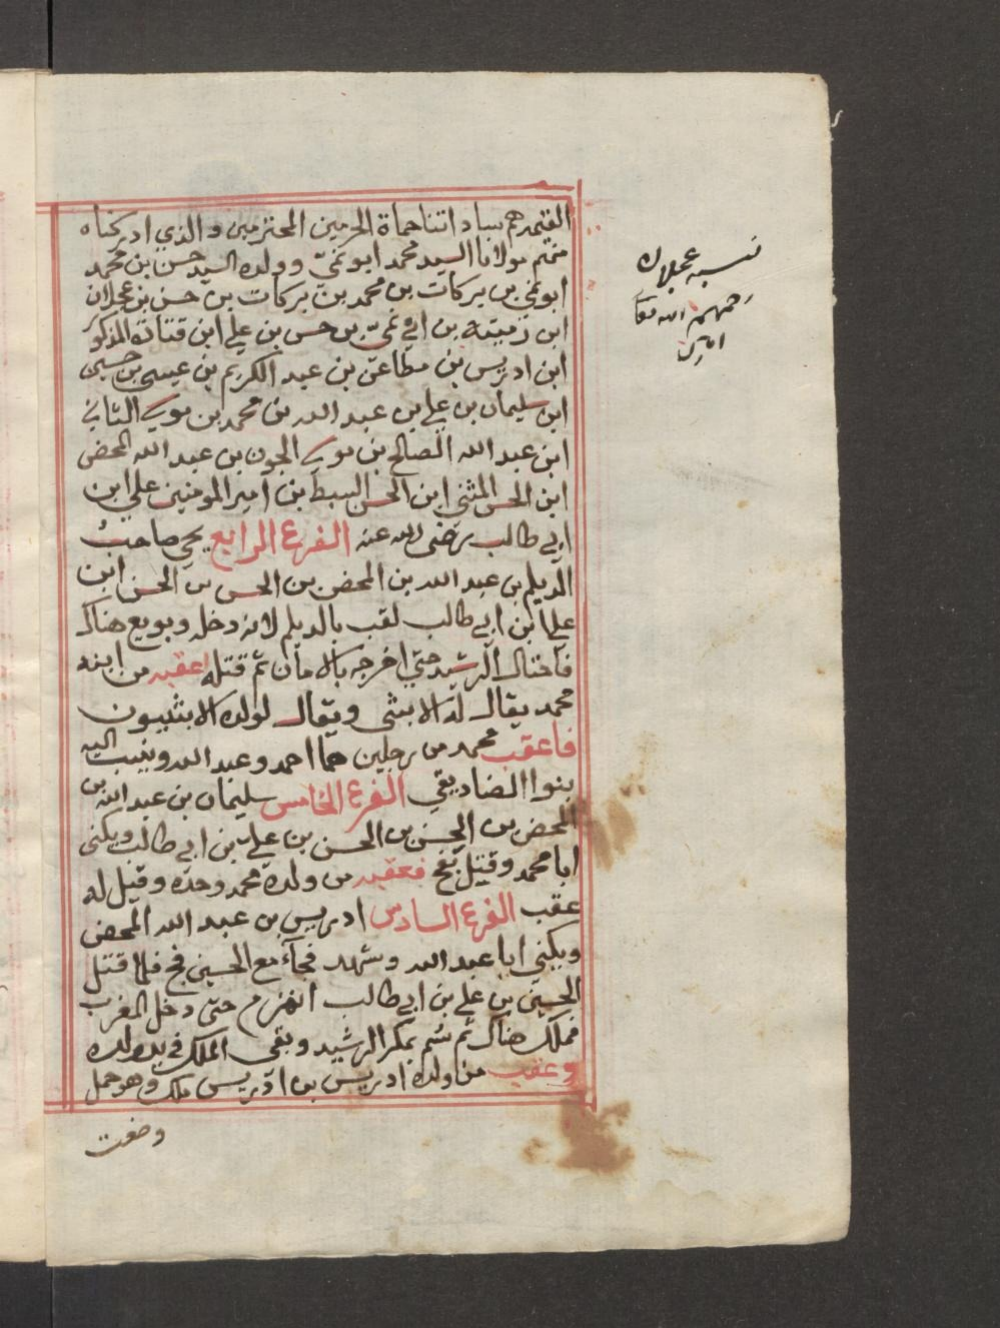 القتمرهم ساداتنا حماة الحرمين المحترمين والذي ادركناه
منهم مولانا السيد محمد ابو نمي وولده السيد حسن بن محمد
ابو نمي بن بركات بن محمد بن بركات بن حسن بن عجلان
ابن رميثه بن ابي نمي بن حسن بن علي ابن قتادة المذكور
ابن ادريس بن مطاعن بن عبد الكريم بن عيسى بن حسين
ابن سليمان بن علي بن عبد الله بن محمد بن موسى الثاني
ابن عبد الله الصالح بن موسى الجون بن عبد الله المحض
ابن الحسن المثني ابن الحسن السبط بن امير المومنين علي ابن
ابي طالب رضي الله عنه الفرع الرابع يحي صاحب
الديلم بن عبد الله بن المحض بن الحسن بن الحسن ابن
علي ابن ابي طالب لقب بالديلم لانه دخله وبويع هناك
فاحتال الرشيد حتي اخرجه بالامان ثم قتله اعقب من ابنه
محمد يقال له الابثي ويقال لولده الابثييون
فاعقب محمد من رجلين هما احمد وعبد الله وينسب اليه
بنوا الضاديقي الفرع الخامس سليمان بن عبد الله بن
المحض بن الحسن بن الحسن بن علي بن ابي طالب ويكنى
ابا محمد وقتل بفخ فعقبه من ولده محمد وحده وقيل له
عقب الفرع السادس ادريس بن عبد الله المحض
ويكني ابا عبد الله وشهد فجآء مع الحسين فخ فلما قتل
الحسين بن علي بن ابي طالب انهزم حتى دخل المغرب
فملك هناك ثم سُم بمكر الرشيد وبقي الملك في يد ولده
وعقب من ولده ادريس بن ادريس ملك وهو حمل
وضعت
نسبة عجلان
رحمهم الله تعالى
امين